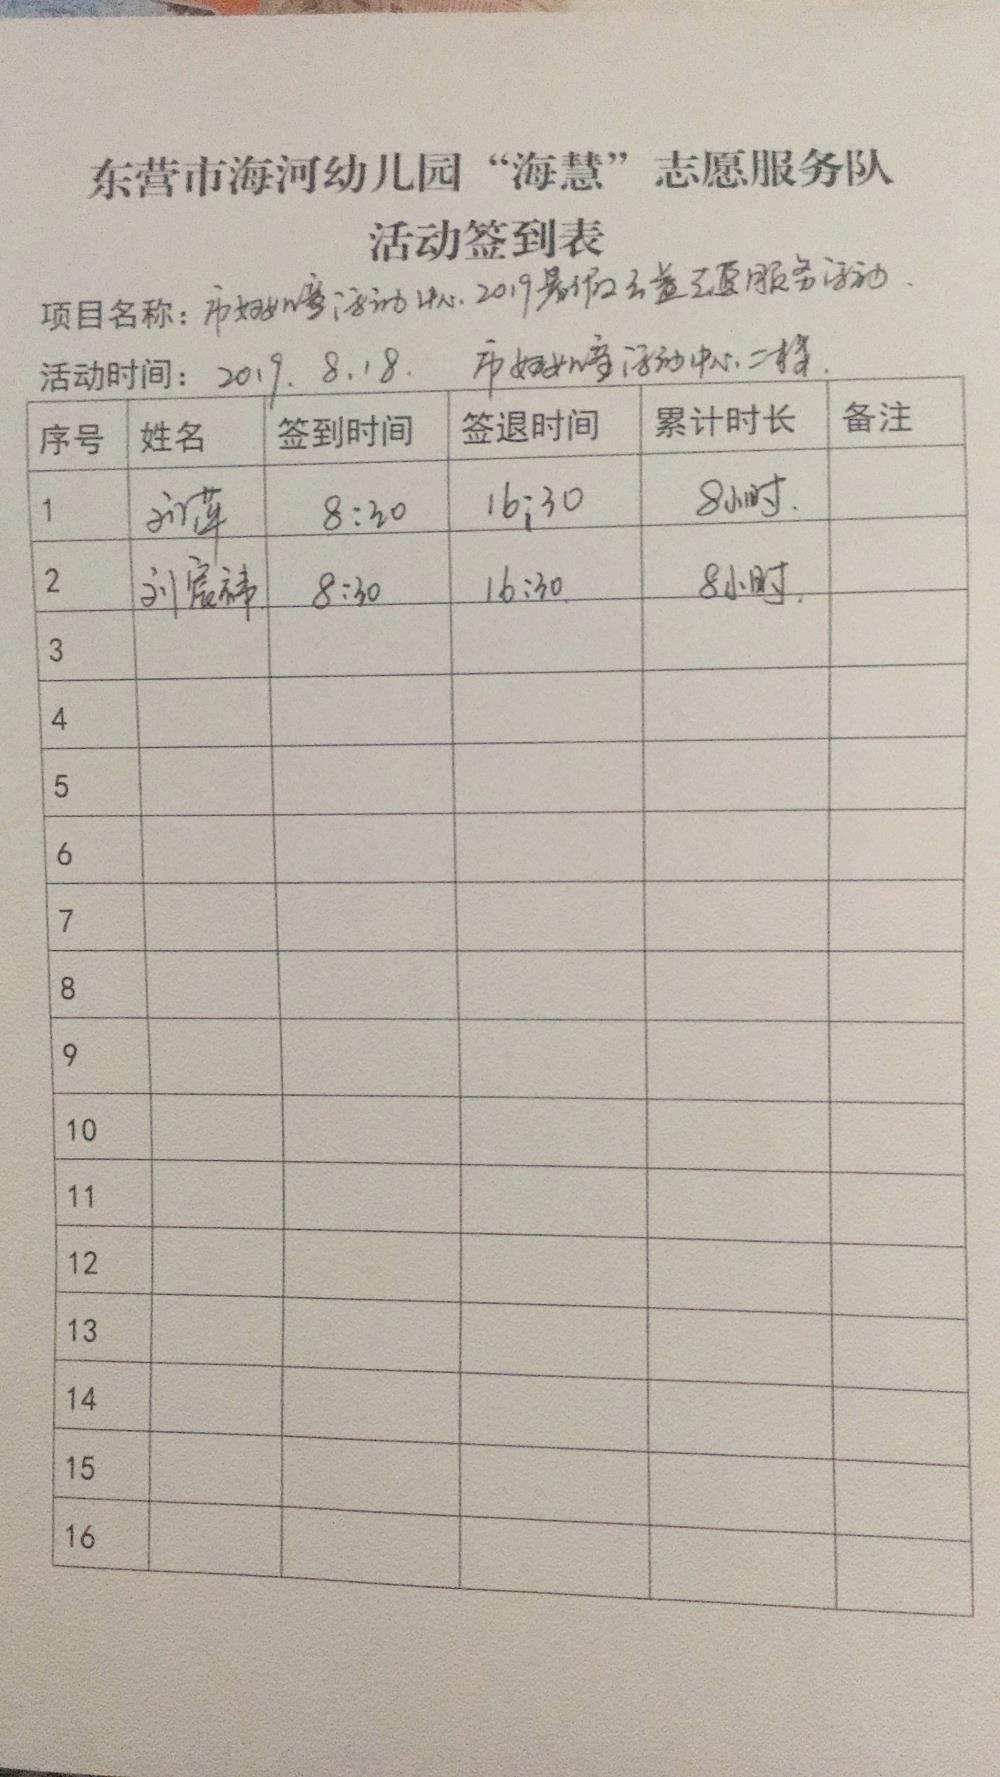 东营市海河幼儿园“海慧”志愿服务队
活动签到表
项目名称：市妇女儿童活动中心.2019暑假公益志愿服务活动.
活动时间：2019.8.18. 市妇女儿童活动中心二楼.
序号 姓名 签到时间 签退时间 累计时长 备注
1 刘萍 8:30 16:30 8小时.
2 刘宸祎 8:30 16:30 8小时.
3
4
5
6
7
8
9
10
11
12
13
14
15
16